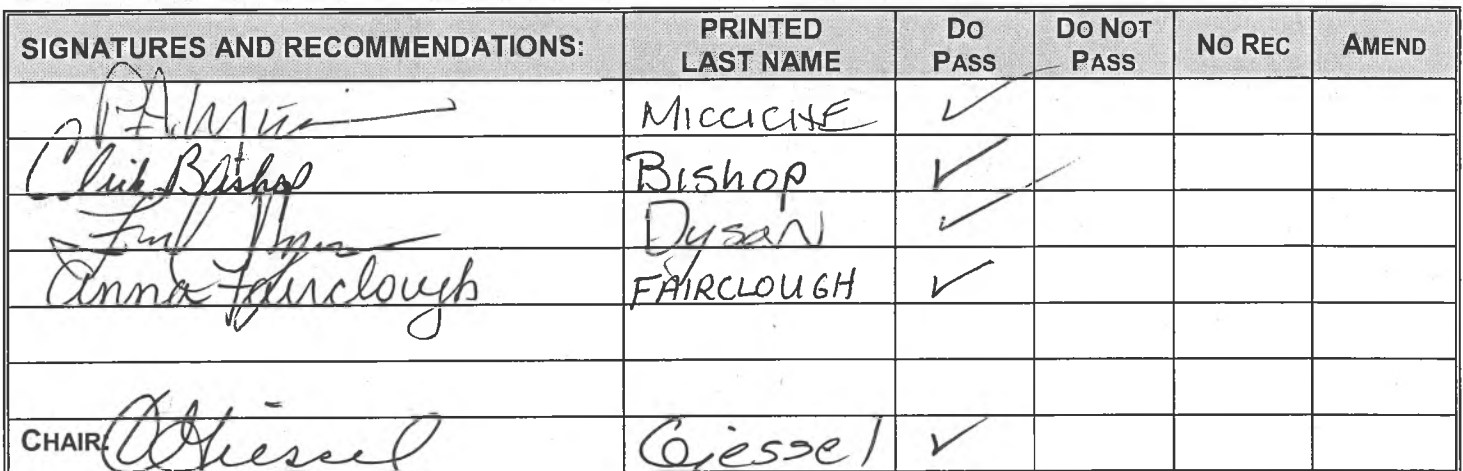 SIGNATURES AND RECOMMENDATIONS: PRINTED LAST NAME DO PASS DO NOT PASS NO REC AMEND
MICCICHE ✓
Click Bishop BISHOP ✓
Dysan ✓
Anna Fairclough FAIRCLOUGH ✓
CHAIR: Giessel Giessel ✓